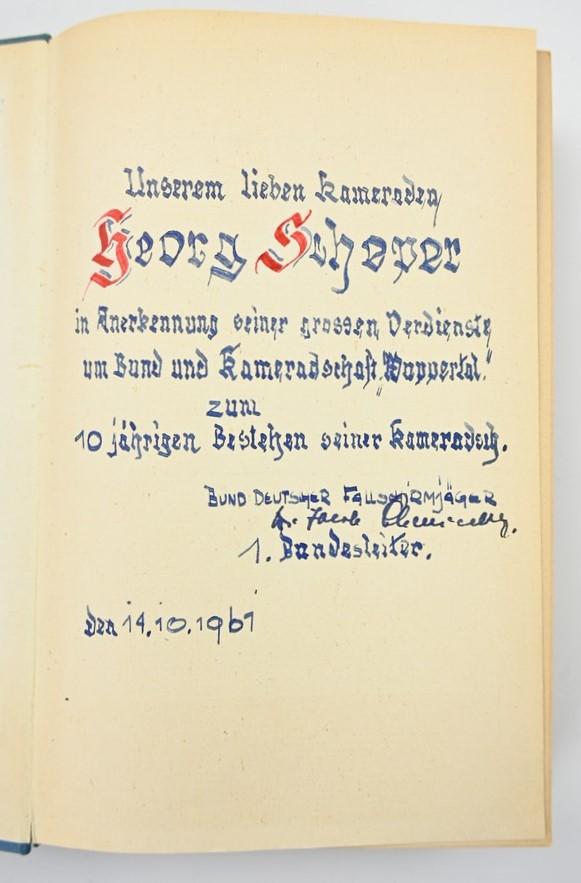 Unserem lieben Kameraden
Georg Scheper
in Anerkennung seiner grossen Verdienste
um Bund und Kameradschaft „Wuppertal“
zum
10 jährigen Bestehen seiner Kameradsch.
BUND DEUTSCHER FALLSCHIRMJÄGER
Dr. Jacob
1. Bundesleiter.
den 14.10.1961